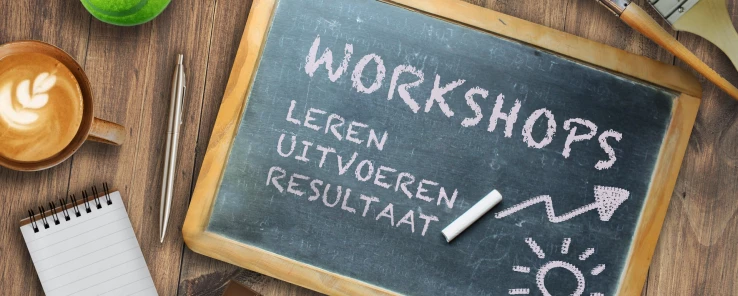 WORKSHOPS
LEREN
UITVOEREN
RESULTAAT